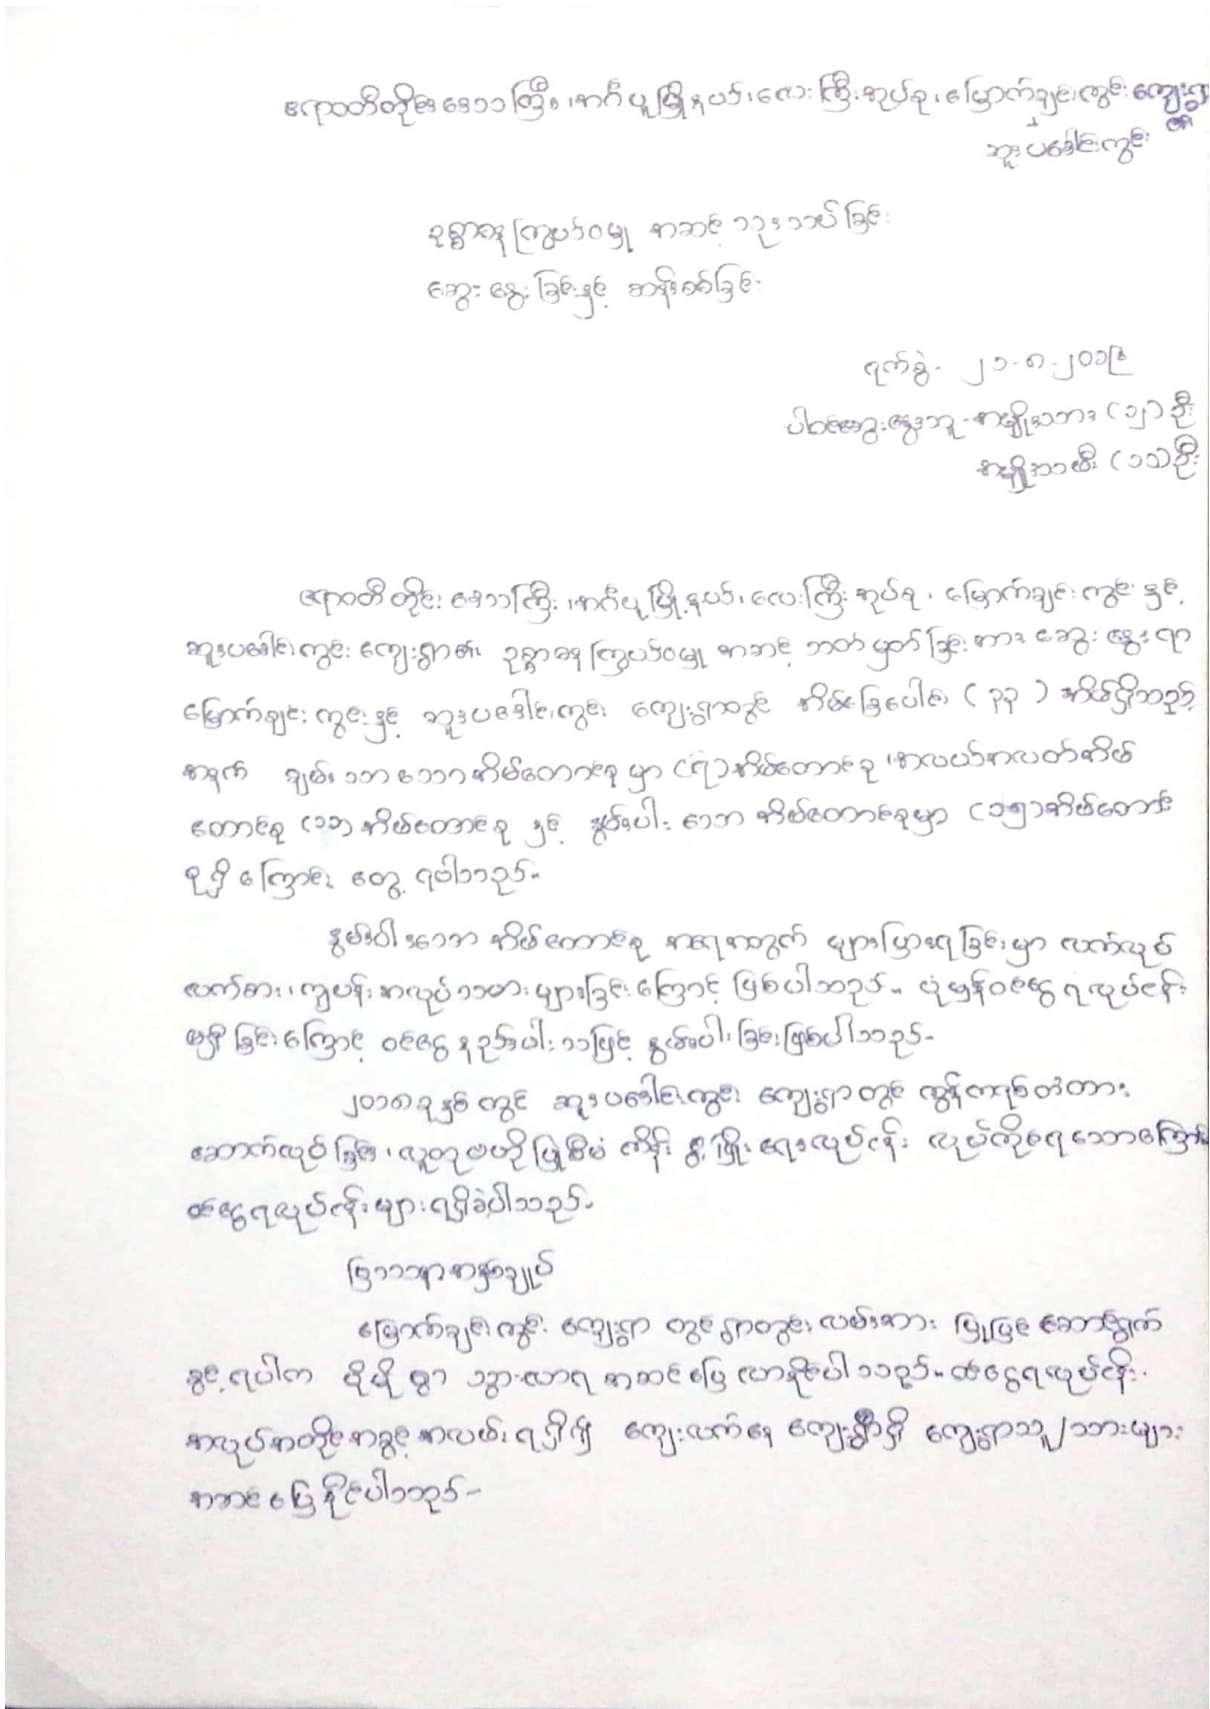 ဧရာဝတီတိုင်းဒေသကြီး၊ အင်္ဂပူမြို့နယ်၊ လေးကြီးအုပ်စု၊ မြောက်ချင်းကွင်းကျေးရွာ
ဆူးပဒေါင်းကွင်း
ဥစ္စာဓန ကြွယ်ဝမှု အဆင့် သုံးသပ်ခြင်း
ဆွေးနွေးခြင်းနှင့် ဆန်းစစ်ခြင်း
ရက်စွဲ - ၂၁-၈-၂၀၁၉
ပါဝင်ဆွေးနွေးသူ - အမျိုးသား (၁၂) ဦး
အမျိုးသမီး (၁၁) ဦး
ဧရာဝတီတိုင်းဒေသကြီး၊ အင်္ဂပူမြို့နယ်၊ လေးကြီးအုပ်စု၊ မြောက်ချင်းကွင်းနှင့်
ဆူးပဒေါင်းကွင်း ကျေးရွာ၏ ဥစ္စာဓန ကြွယ်ဝမှု အဆင့် သတ်မှတ်ခြင်းအား ဆွေးနွေးရာ
မြောက်ချင်းကွင်းနှင့် ဆူးပဒေါင်းကွင်း ကျေးရွာတွင် အိမ်ခြေပေါင်း (၃၃) အိမ်ရှိသည့်
အနက် ချမ်းသာသောအိမ်ထောင်စုမှာ (၇) အိမ်ထောင်စု၊ အလယ်အလတ်အိမ်
ထောင်စု (၁၁) အိမ်ထောင်စု နှင့် နွမ်းပါးသော အိမ်ထောင်စုမှာ (၁၅) အိမ်ထောင်
စုရှိကြောင်း တွေ့ရပါသည်။
နွမ်းပါးသော အိမ်ထောင်စု အရေအတွက် များပြားရခြင်းမှာ လက်လုပ်
လက်စား၊ ကျပန်းအလုပ်သမားများခြင်းကြောင့် ဖြစ်ပါသည်။ ပုံမှန်ဝင်ငွေရလုပ်ငန်း
မရှိခြင်းကြောင့် ဝင်ငွေနည်းပါးသဖြင့် နွမ်းပါးခြင်းဖြစ်ပါသည်။
၂၀၁၈ ခုနှစ်တွင် ဆူးပဒေါင်းကွင်း ကျေးရွာတွင် ကွန်ကရစ်တံတား
ဆောက်လုပ်ခြင်း၊ လူထုဗဟိုပြုစီမံကိန်း ဖွံ့ဖြိုးရေးလုပ်ငန်း လုပ်ကိုင်ရသောကြောင့်
ဝင်ငွေရလုပ်ငန်းများရရှိခဲ့ပါသည်။
ပြဿနာအနှစ်ချုပ်
မြောက်ချင်းကွင်း ကျေးရွာတွင် ရွာတွင်းလမ်းအား ပြုပြင်ဆောင်ရွက်
ခွင့်ရပါက ပိုမိုစွာ သွားလာရ အဆင်ပြေလာနိုင်ပါသည်။ ဝင်ငွေရလုပ်ငန်း
အလုပ်အကိုင်အခွင့်အလမ်းရရှိ၍ ကျေးလက်နေ ကျေးရွာရှိ ကျေးရွာသူ/သားများ
အဆင်ပြေနိုင်ပါသည်။